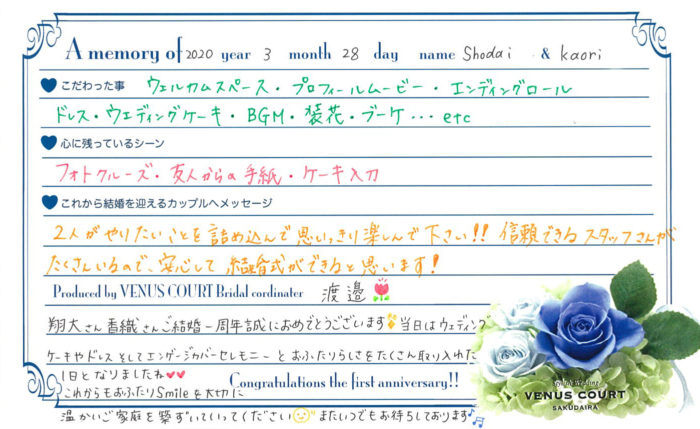 A memory of 2020 year 3 month 28 day name Shodai & kaori
こだわった事 ウェルカムスペース・プロフィールムービー・エンディングロール
ドレス・ウエディングケーキ・BGM・装花・ブーケ…etc
心に残っているシーン
フォトクルーズ・友人からの手紙・ケーキ入刀
これから結婚を迎えるカップルへメッセージ
2人がやりたいことを詰め込んで思いっきり楽しんで下さい!! 信頼できるスタッフさんが
たくさんいるので、安心して結婚式ができると思います!
Produced by VENUS COURT Bridal cordinater 渡邉
翔大さん香織さんご結婚一周年誠におめでとうございます 当日はウェディング
ケーキやドレスそしてエンゲージカバーセレモニーとおふたりらしさをたくさん取り入れた
1日となりましたね
Congratulations the first anniversary!!
これからもおふたりSmileを大切に
温かいご家庭を築ずいていってください またいつでもお待ちしております
VENUS COURT
SAKUDAIRA